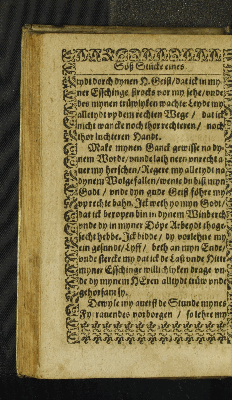 Söß Stücke eines
tydt dorch dynen H. Geist / dat ick in my
ner Esschinge strecks vor my sehe / vnde
des mynen trüwlyken wachte Leyde my
alletydt vp dem rechten Wege / dat ick
nicht wancke noch thor rechteren / noch
thor luchteren Handt.
Make mynen Ganck gewisse na dy
nem Worde / vnnde lath neen vnrecht a
uer my herschen / Regere my alletydt na
dynem Wolgefallen / wente du bist myn
Godt / vnde dyn gude Geist föhre my
vp rechte bahn. Ick weth yo myn Godt /
dat ick beropen bin in dynem Winberch
vnde dy in myner Döpe Arbeydt thoge
secht hebbe. Ick bidde / dy vorlehne my
en gesundt / Lyff / beth an myn Ende /
vnde stercke my dat ick de Last vnde Hitte
myner Esschinge willichlyken drage vn
de dy mynem HEren alltydt trüw vnde
gehorsam sy.
Dewyle my auerst de Stunde mynes
Fyrauendes vorborgen / so lehre my